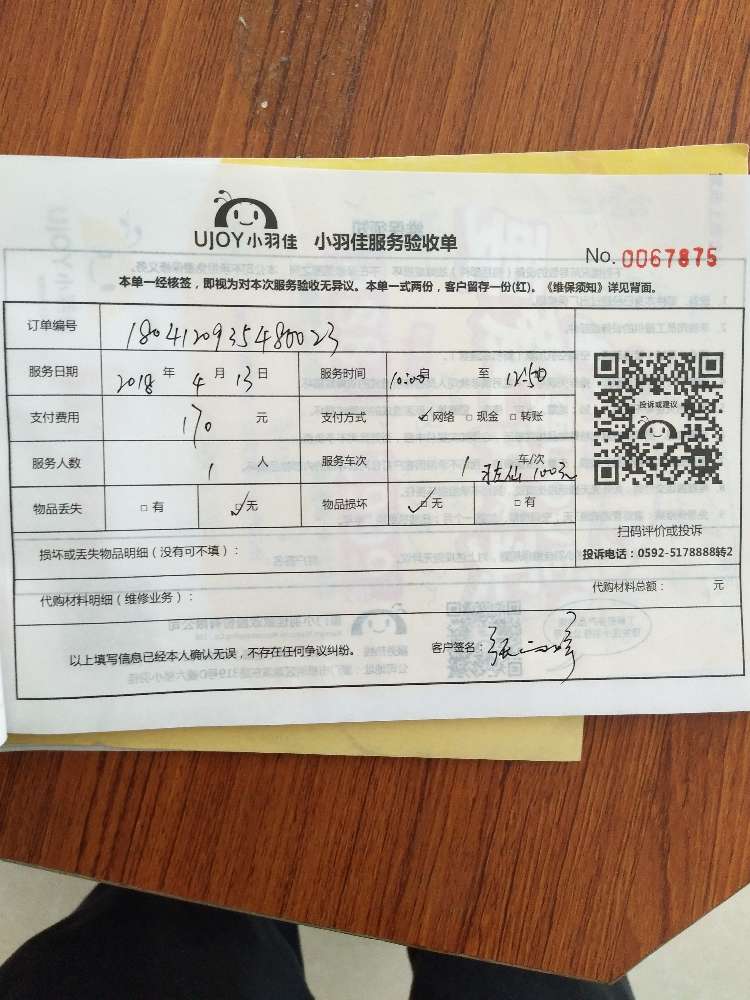 UJOY小羽佳 小羽佳服务验收单
No. 0067875
本单一经核签，即视为对本次服务验收无异议。本单一式两份，客户留存一份(红)。《维保须知》详见背面。
订单编号 1804120935480023
服务日期 2018 年 4 月 13 日 服务时间 10:00 至 12:50
支付费用 170 元 支付方式 ☑网络 □现金 □转账
服务人数 1 人 服务车次 1 车/次
100元
物品丢失 □有 ☑无 物品损坏 ☑无 □有
投诉或建议
扫码评价或投诉
投诉电话：0592-5178888转2
损坏或丢失物品明细（没有可不填）：
代购材料明细（维修业务）： 代购材料总额： 元
以上填写信息已经本人确认无误，不存在任何争议纠纷。 客户签名：